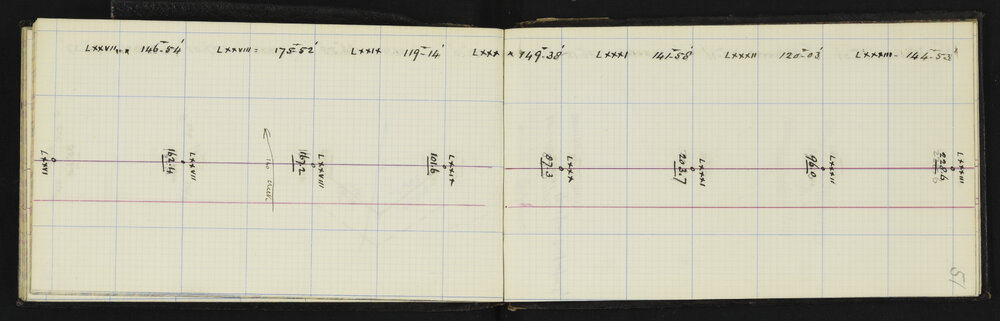 LXXVII 146-54' LXXVIII = 175-52' LXXIX 119-14' LXXX 149-38' LXXXI 141-58' LXXXII 120-03' LXXXIII - 144-53'
LXXVI
LXXVII
162.4
LXXVIII
167.2
LXXIX
101.6
LXXX
87.3
LXXXI
203.7
LXXXII
96.0
LXXXIII
228.6
51